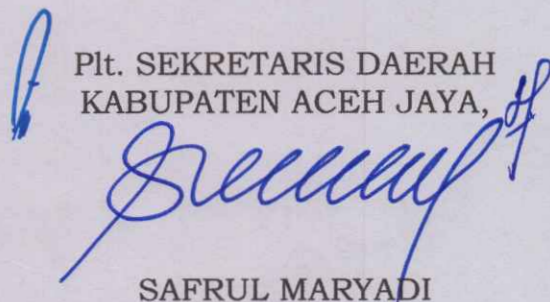 Plt. SEKRETARIS DAERAH
KABUPATEN ACEH JAYA,
SAFRUL MARYADI